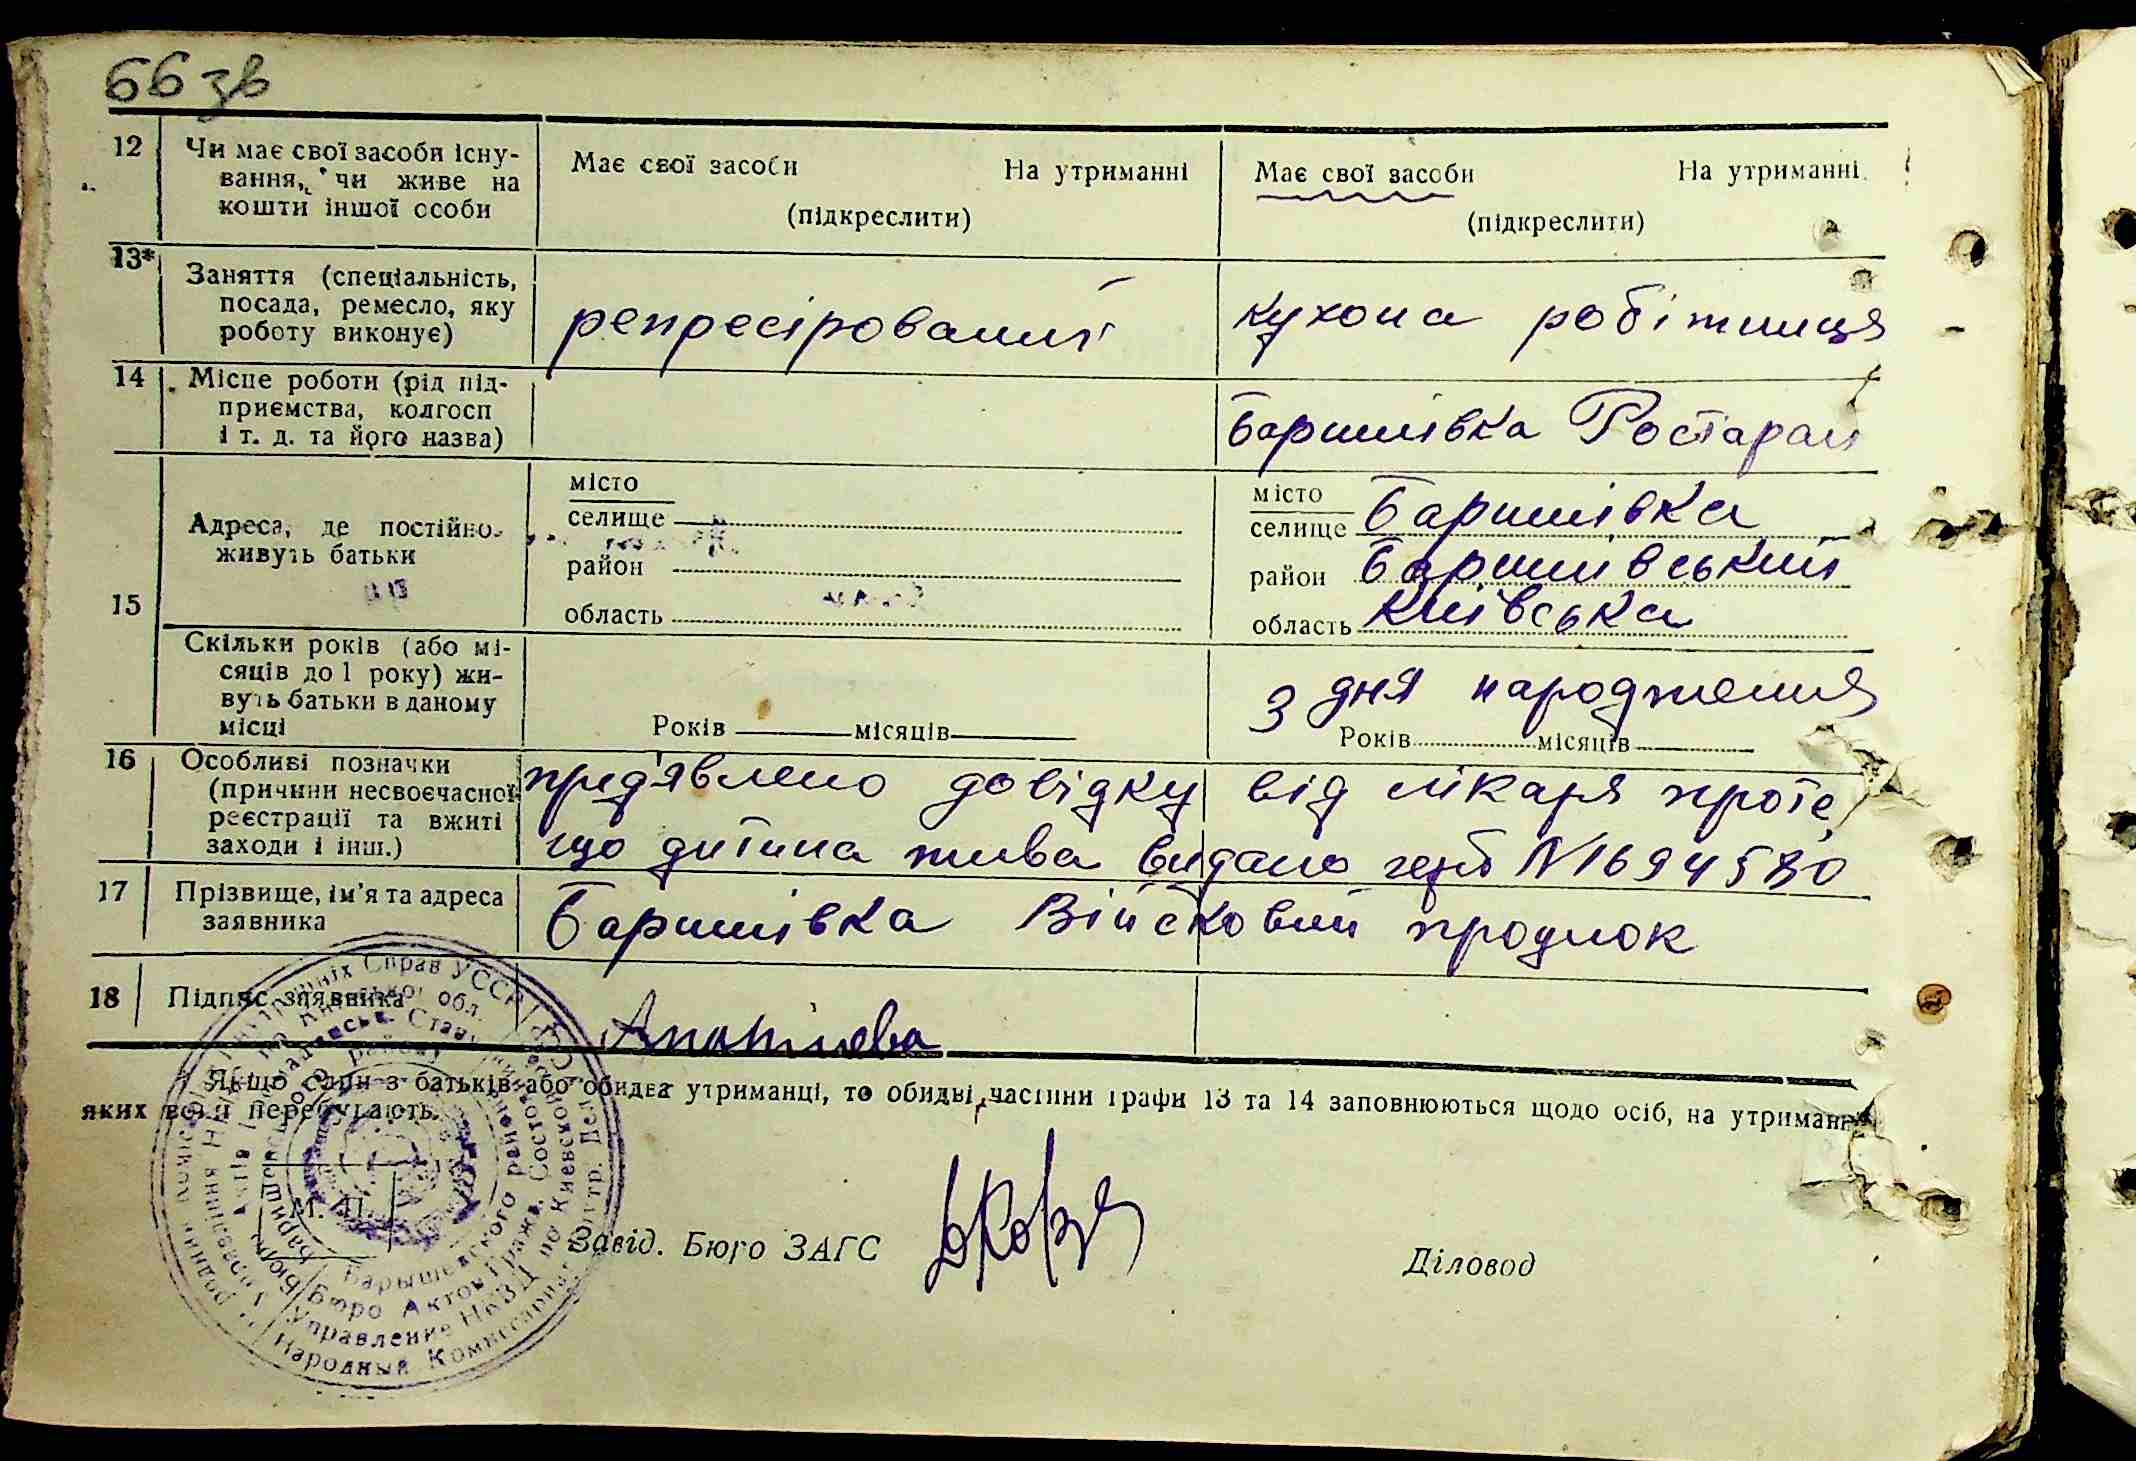 66 зв
12 Чи має свої засоби існу- Має свої засоби На утриманні Має свої засоби На утриманні
вання, чи живе на
кошти іншої особи (підкреслити) (підкреслити)
13* Заняття (спеціальність,
посада, ремесло, яку репресірований кухона робітниця
роботу виконує)
14 Місце роботи (рід під-
приємства, колгосп Баришівка Ростаран
і т. д. та його назва)
15 Адреса, де постійно
живуть батьки
місто
селище
район
область
місто
селище Баришівка
район Баришівський
область Київська
Скільки років (або мі-
сяців до 1 року) жи-
вуть батьки в даному
місці
Років місяців
З дня народження
Років місяців
16 Особливі позначки
(причини несвоєчасної
реєстрації та вжиті
заходи і інш.)
пред'явлено довідку від лікаря проте,
що дитина жива видано герб N 1694580
17 Прізвище, ім'я та адреса
заявника
Баришівка Війсковий продпок
18 Підпис заявника
Якщо один з батьків або обидва утриманці, то обидві частини графи 13 та 14 заповнюються щодо осіб, на утриманні
яких вони перебувають.
М. П.
Завід. Бюро ЗАГС Діловод
Внутрішніх Справ УССР
Київської обл.
Барышевского района
Бюро Актов Гражд. Состояния
Управление НКВД по Киевской
Народный Комиссариат Внутр. Дел